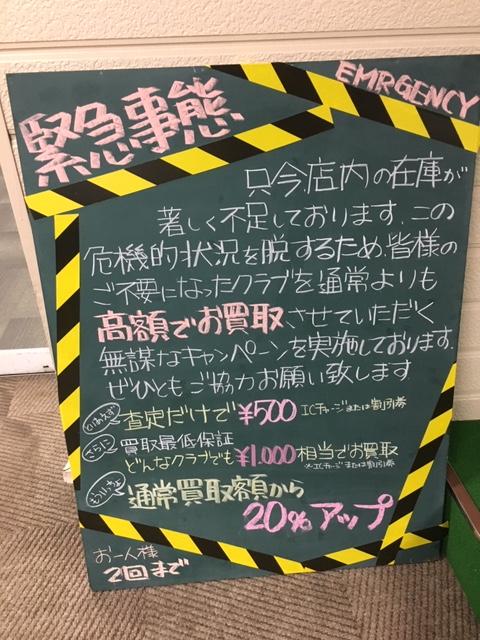 緊急事態
EMRGENCY
只今店内の在庫が
著しく不足しております。この
危機的状況を脱するため、皆様の
ご不要になったクラブを通常よりも
高額でお買取させていただく
無謀なキャンペーンを実施しております。
ぜひともご協力お願い致します
とりあえず 査定だけで¥500 ICチャージまたは割引券
さらに 買取最低保証
どんなクラブでも¥1.000相当でお買取
※ICチャージまたは割引券
もういっちょ 通常買取額から
20%アップ
お一人様
2回まで